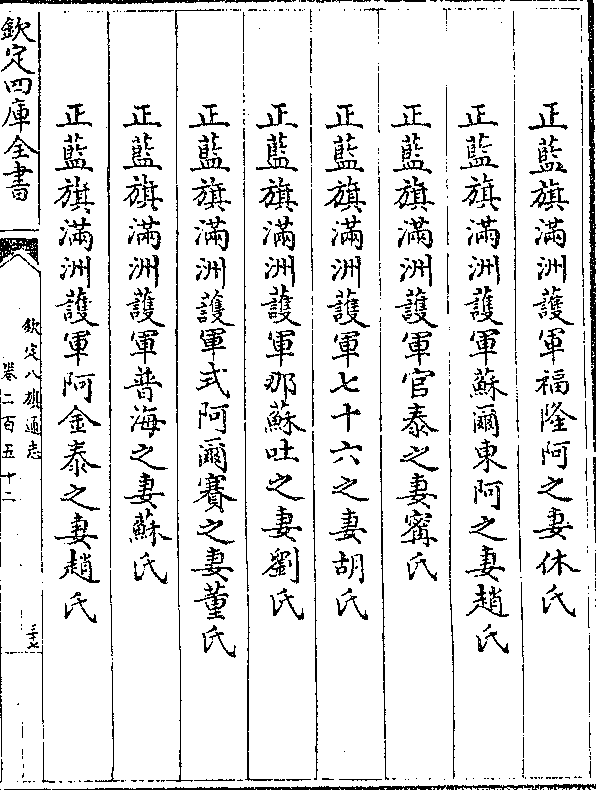 正藍旗滿洲護軍福隆阿之妻休氏
正藍旗滿洲護軍蘇爾東阿之妻趙氏
正藍旗滿洲護軍官泰之妻寗氏
正藍旗滿洲護軍七十六之妻胡氏
正藍旗滿洲護軍那蘇吐之妻劉氏
正藍旗滿洲護軍式阿爾賽之妻董氏
正藍旗滿洲護軍普海之妻蘇氏
正藍旗滿洲護軍阿金泰之妻趙氏
欽定四庫全書
欽定八旗通志
卷二百五十二